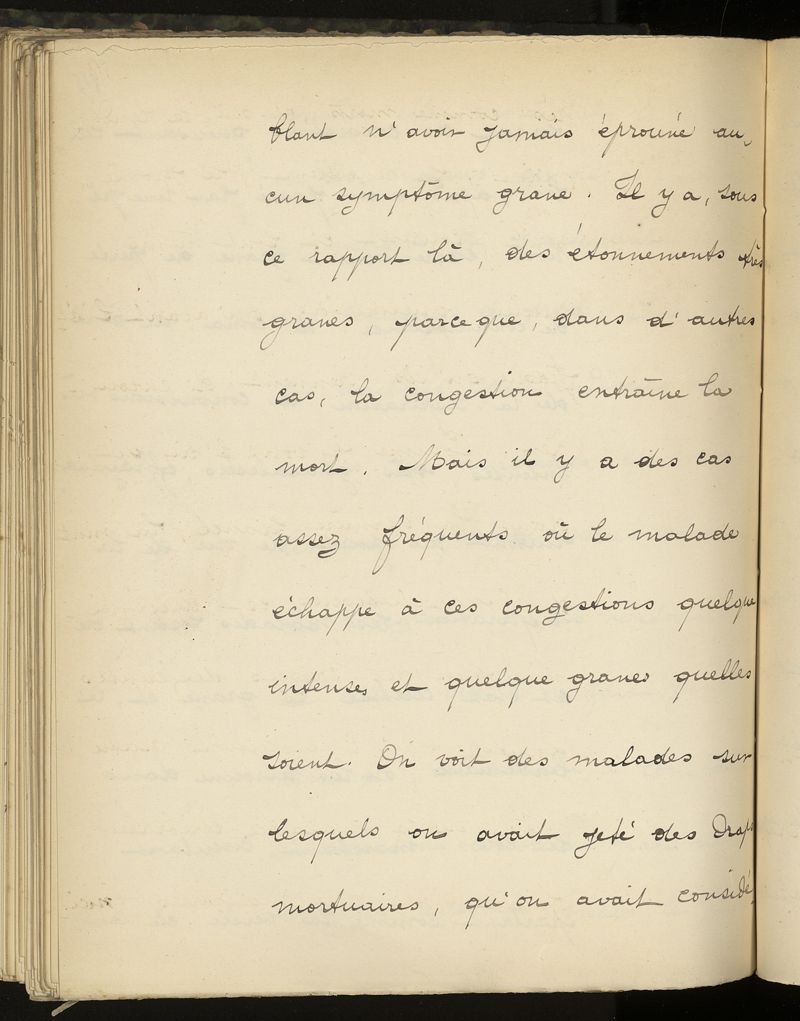 blant n'avoir jamais éprouvé au-
cun symptôme grave. Il y a, sous
ce rapport là, des étonnements très
graves, parceque, dans d'autres
cas, la congestion entraîne la
mort. Mais il y a des cas
assez fréquents où le malade
échappe à ces congestions quelque
intenses et quelque graves quelles
soient. On voit des malades sur
lesquels on avait jeté des draps
mortuaires, qu'on avait considé-